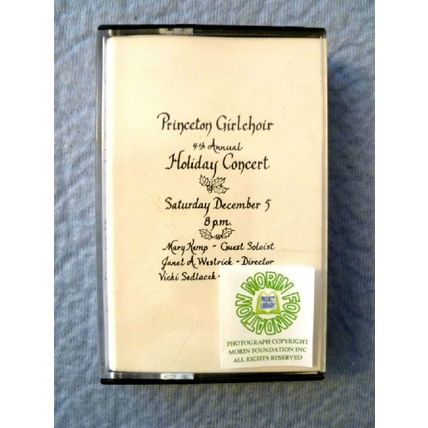 Princeton Girlchoir
4th Annual
Holiday Concert
Saturday December 5
8 p.m.
Mary Kemp - Guest Soloist
Janet A Westrick - Director
Vicki Sedlacek -
MORIN FOUNDATION
PROJECT
LIBRARY
PHOTOGRAPH COPYRIGHT
MORIN FOUNDATION INC
ALL RIGHTS RESERVED